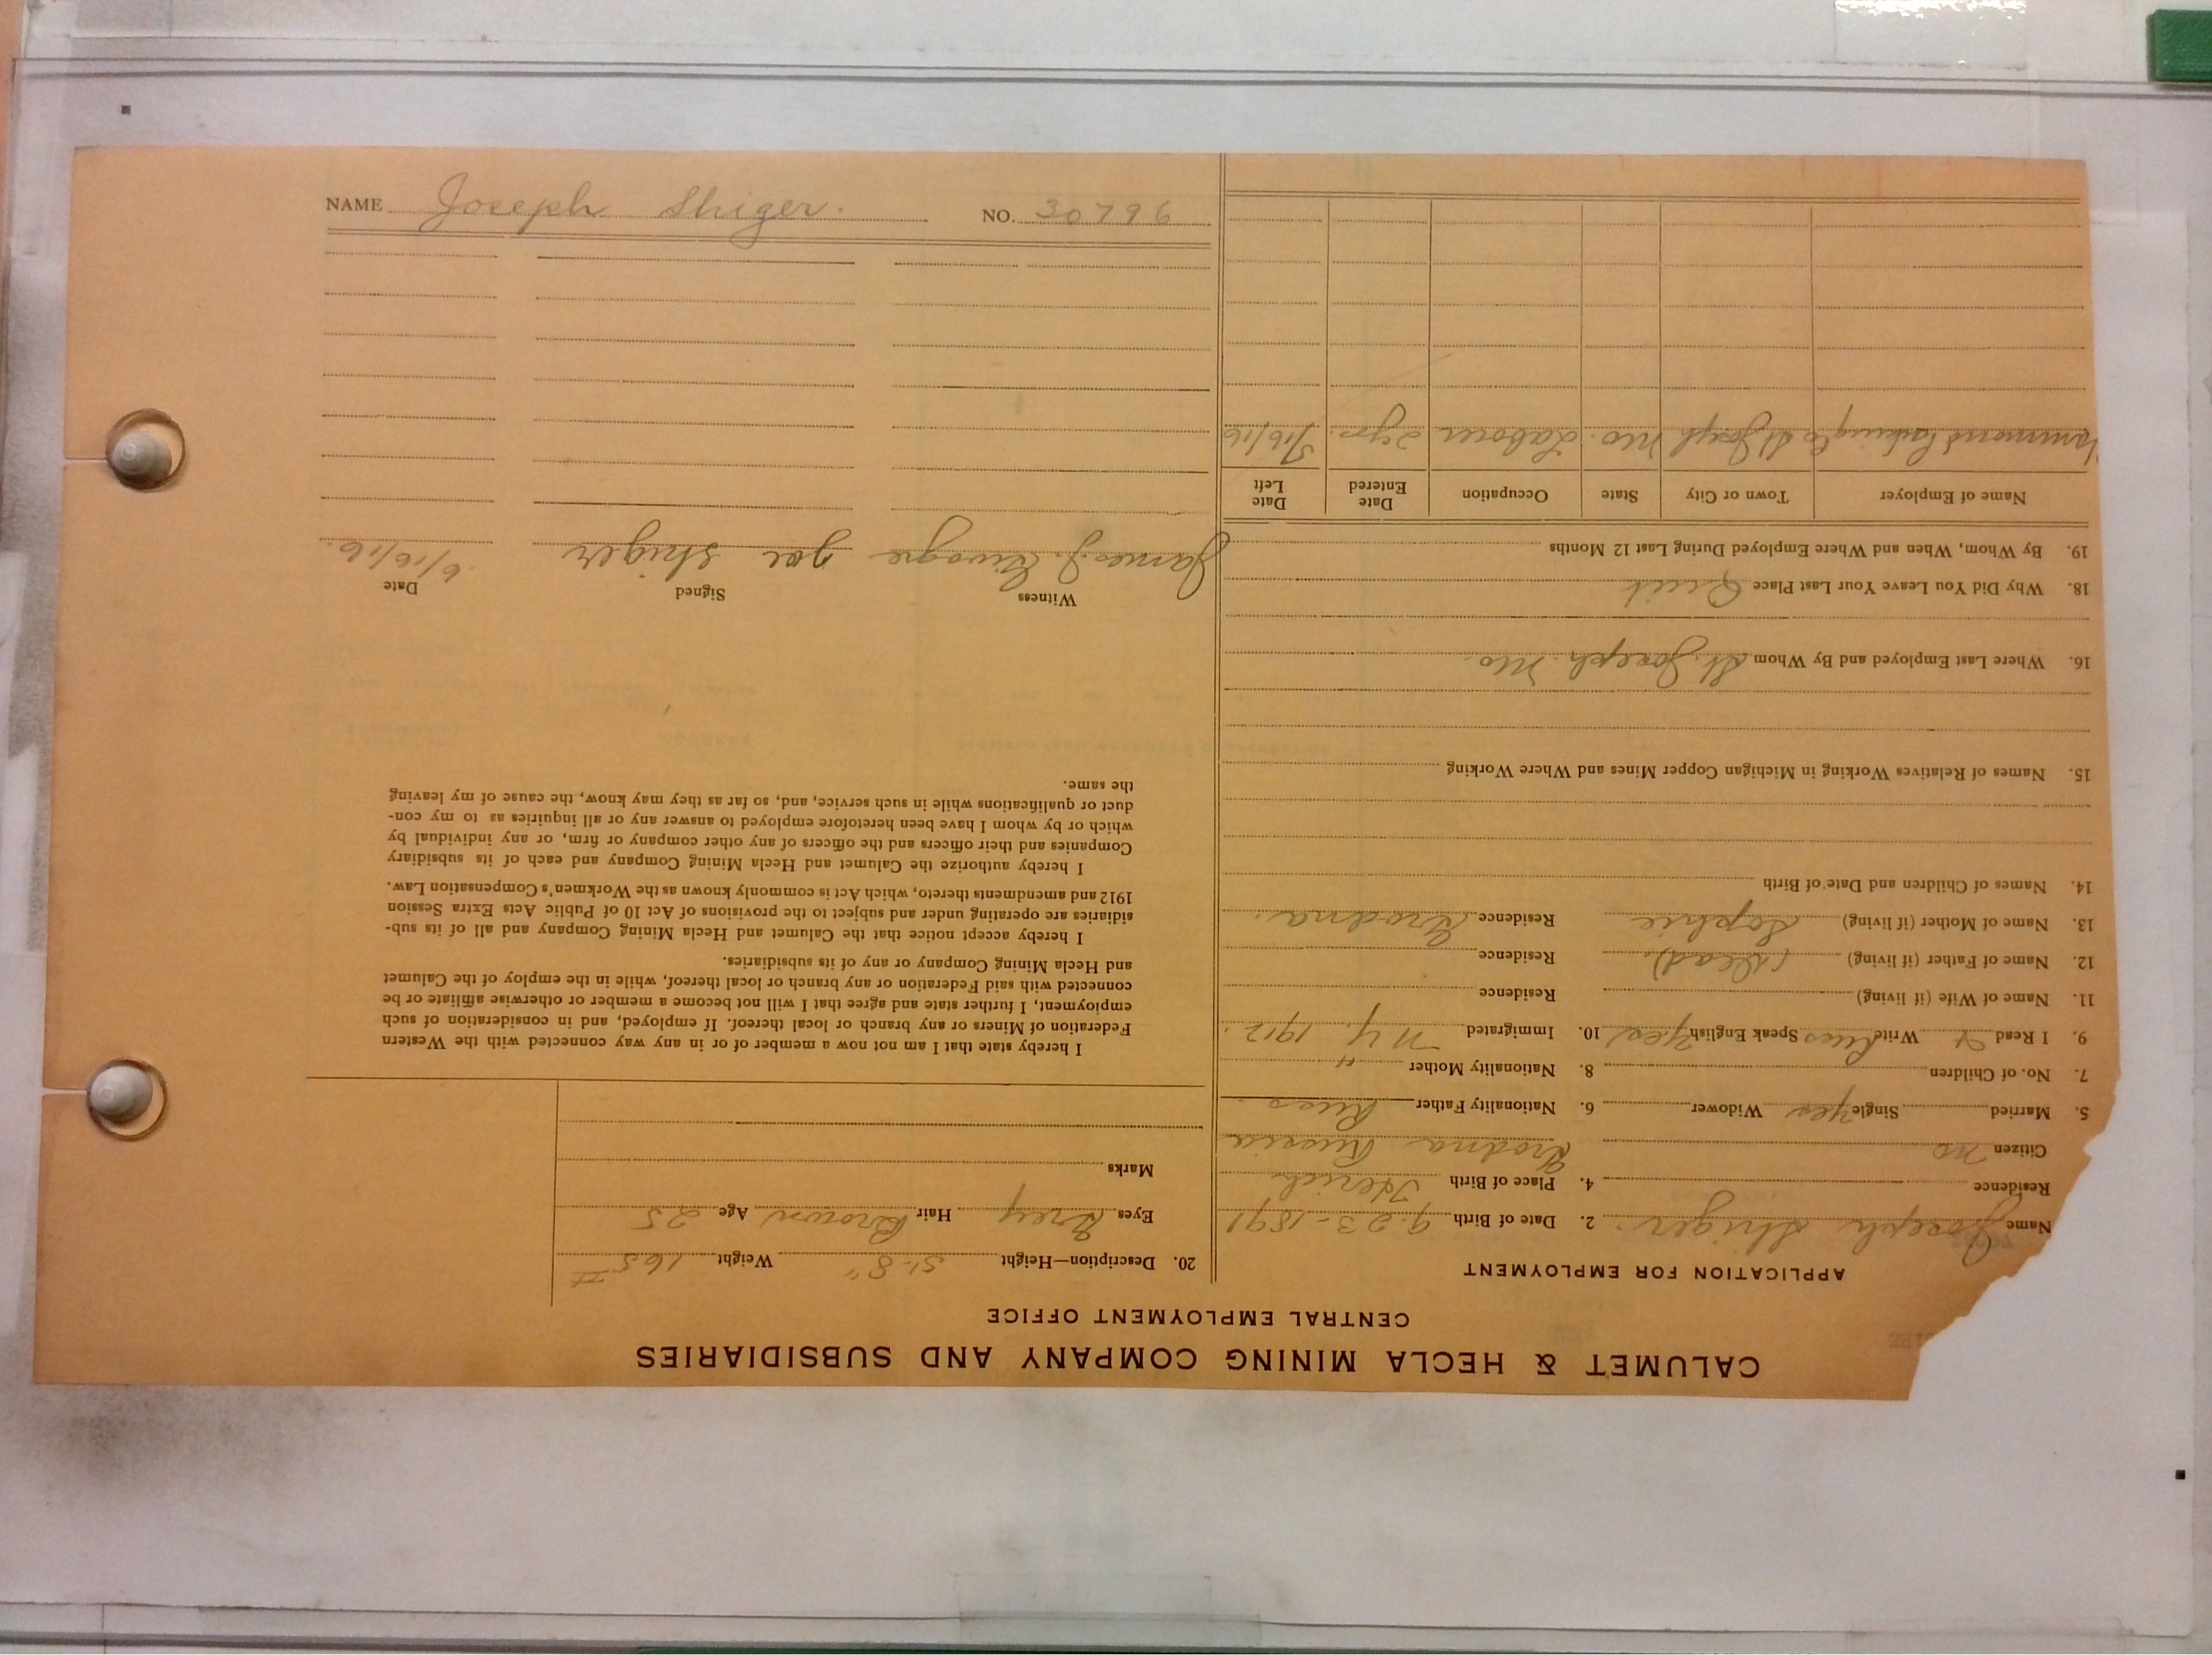 CALUMET & HECLA MINING COMPANY AND SUBSIDIARIES
CENTRAL EMPLOYMENT OFFICE
APPLICATION FOR EMPLOYMENT
Name Joseph Shiger. 2. Date of Birth 9-23-1891
Residence 4. Place of Birth
Citizen no Grodna Russia
5. Married Single yes Widower 6. Nationality Father Russ
7. No. of Children 8. Nationality Mother "
9. I Read Write Russ Speak English yes 10. Immigrated N.Y. 1912.
11. Name of Wife (if living) Residence
12. Name of Father (if living) (Dead) Residence
13. Name of Mother (if living) Sophie Residence Grodna.
14. Names of Children and Date of Birth
15. Names of Relatives Working in Michigan Copper Mines and Where Working
16. Where Last Employed and By Whom St. Joseph Mo.
18. Why Did You Leave Your Last Place Quit
19. By Whom, When and Where Employed During Last 12 Months
Name of Employer Town or City State Occupation Date Entered Date Left
St Joseph Mo. Laborer 2 yrs. 5/16/16
20. Description—Height 5'-8" Weight 165
Eyes Grey Hair Brown Age 25
Marks
I hereby state that I am not now a member of or in any way connected with the Western
Federation of Miners or any branch or local thereof. If employed, and in consideration of such
employment, I further state and agree that I will not become a member or otherwise affiliate or be
connected with said Federation or any branch or local thereof, while in the employ of the Calumet
and Hecla Mining Company or any of its subsidiaries.
I hereby accept notice that the Calumet and Hecla Mining Company and all of its sub-
sidiaries are operating under and subject to the provisions of Act 10 of Public Acts Extra Session
1912 and amendments thereto, which Act is commonly known as the Workmen's Compensation Law.
I hereby authorize the Calumet and Hecla Mining Company and each of its subsidiary
Companies and their officers and the officers of any other company or firm, or any individual by
which or by whom I have been heretofore employed to answer any or all inquiries as to my con-
duct or qualifications while in such service, and, so far as they may know, the cause of my leaving
the same.
Witness Signed Date
James J. Joe Shiger 6/16/16.
NAME Joseph Shiger. NO. 30796